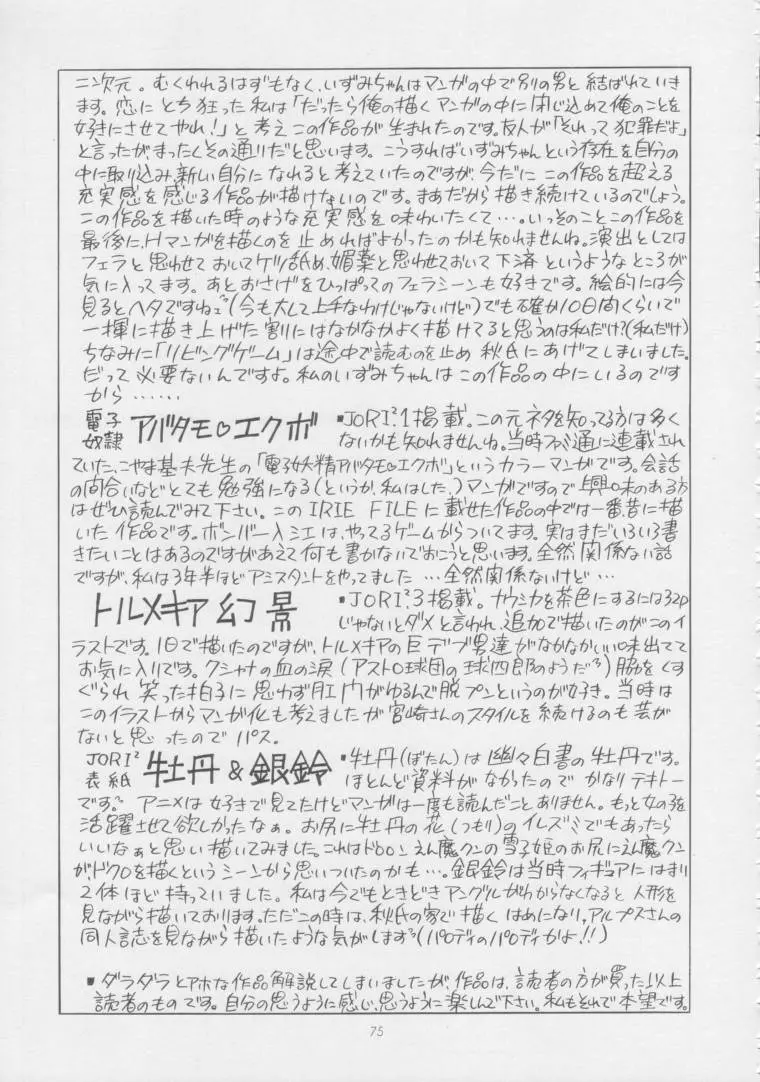 二次元。むくわれるはずもなく、いずみちゃんはマンガの中で別の男と結ばれていき
ます。恋にとち狂った私は「だったら俺の描くマンガの中に閉じ込めて俺のことを
好きにさせてやれ!」と考えこの作品が生まれたのです。友人が「それって犯罪だよ」
と言ったが、まったくその通りだと思います。こうすればいずみちゃんという存在を自分の
中に取り込み、新しい自分になれると考えていたのですが、今だにこの作品を超える
充実感を感じる作品が描けないのです。まあだから描き続けているのでしょう。
この作品を描いた時のような充実感を味わいたくて…。いっそのことこの作品を
最後に、Hマンガを描くのを止めればよかったのかも知れませんね。演出としては
フェラと思わせておいてケツ舐め、媚薬と思わせておいて下済というようなところが
気に入ってます。あとおさげをひっぱってのフェラシーンも好きです。絵的には今
見るとヘタですねェ(今も大して上手なわけじゃないけど)でも確か10日間くらいで
一揮に描き上げた割にはなかなかよく描けてると思うのは私だけ?(私だけ)
ちなみに「リビングゲーム」は途中で読むのを止め秋氏にあげてしまいました。
だって必要ないんですよ。私のいずみちゃんはこの作品の中にいるのです
から……
電子
奴隷 アバタモ♡エクボ ▪JORI²1掲載。この元ネタを知ってる方は多く
ないかも知れませんね。当時ファミ通に連載され
ていた、こやま基夫先生の「電子妖精アバタモ♡エクボ」というカラーマンガです。会話
の間合いなどとても勉強になる(というか、私はした。)マンガですので興味のある方
はぜひ読んでみて下さい。このIRIE FILEに載せた作品の中では一番、昔に描
いた作品です。ボンバー入江は、やってるゲームからついてます。実はまだいろいろ書
きたいことはあるのですがあえて何も書かないでおこうと思います。全然関係ない話
ですが、私は3年半ほどアシスタントをやってました…全然関係ないけど…
トルメキア幻景 ▪JORI²3掲載。ナウシカを茶色にするには32p
じゃないとダメと言われ、追加で描いたのがこのイ
ラストです。1日で描いたのですが、トルメキアの巨デブ男達がなかなかいい味出てて
お気に入りです。クシャナの血の涙(アストロ球団の球四郎のようだ)脇をくす
ぐられ笑った拍子に思わず肛門がゆるんで脱プンというのが好き。当時は
このイラストからマンガ化も考えましたが宮崎さんのスタイルを続けるのも芸が
ないと思ったのでパス。
JORI²
表紙 牡丹&銀鈴 ▪牡丹(ぼたん)は幽々白書の牡丹です。
ほとんど資料がなかったのでかなりテキトー
です。アニメは好きで見てたけどマンガは一度も読んだことありません。もっと女の子を
活躍させて欲しかったなぁ。お尻に牡丹の花(つもり)のイレズミでもあったら
いいなぁと思い描いてみました。これはドロロンえん魔クンの雪子姫のお尻にえん魔クン
がドクロを描くというシーンから思いついたのかも…。銀鈴は当時フィギュアにはまり
2体ほど持っていました。私は今でもときどきアングルがわからなくなると人形を
見ながら描いております。ただこの時は、秋氏の家で描くはめになり、アルプスさんの
同人誌を見ながら描いたような気がします(パロディのパロディかよ!!)
▪ダラダラとアホな作品解説してしまいましたが、作品は、読者の方が買った以上
読者のものです。自分の思うように感じ、思うように楽しんで下さい。私もそれで本望です。
75